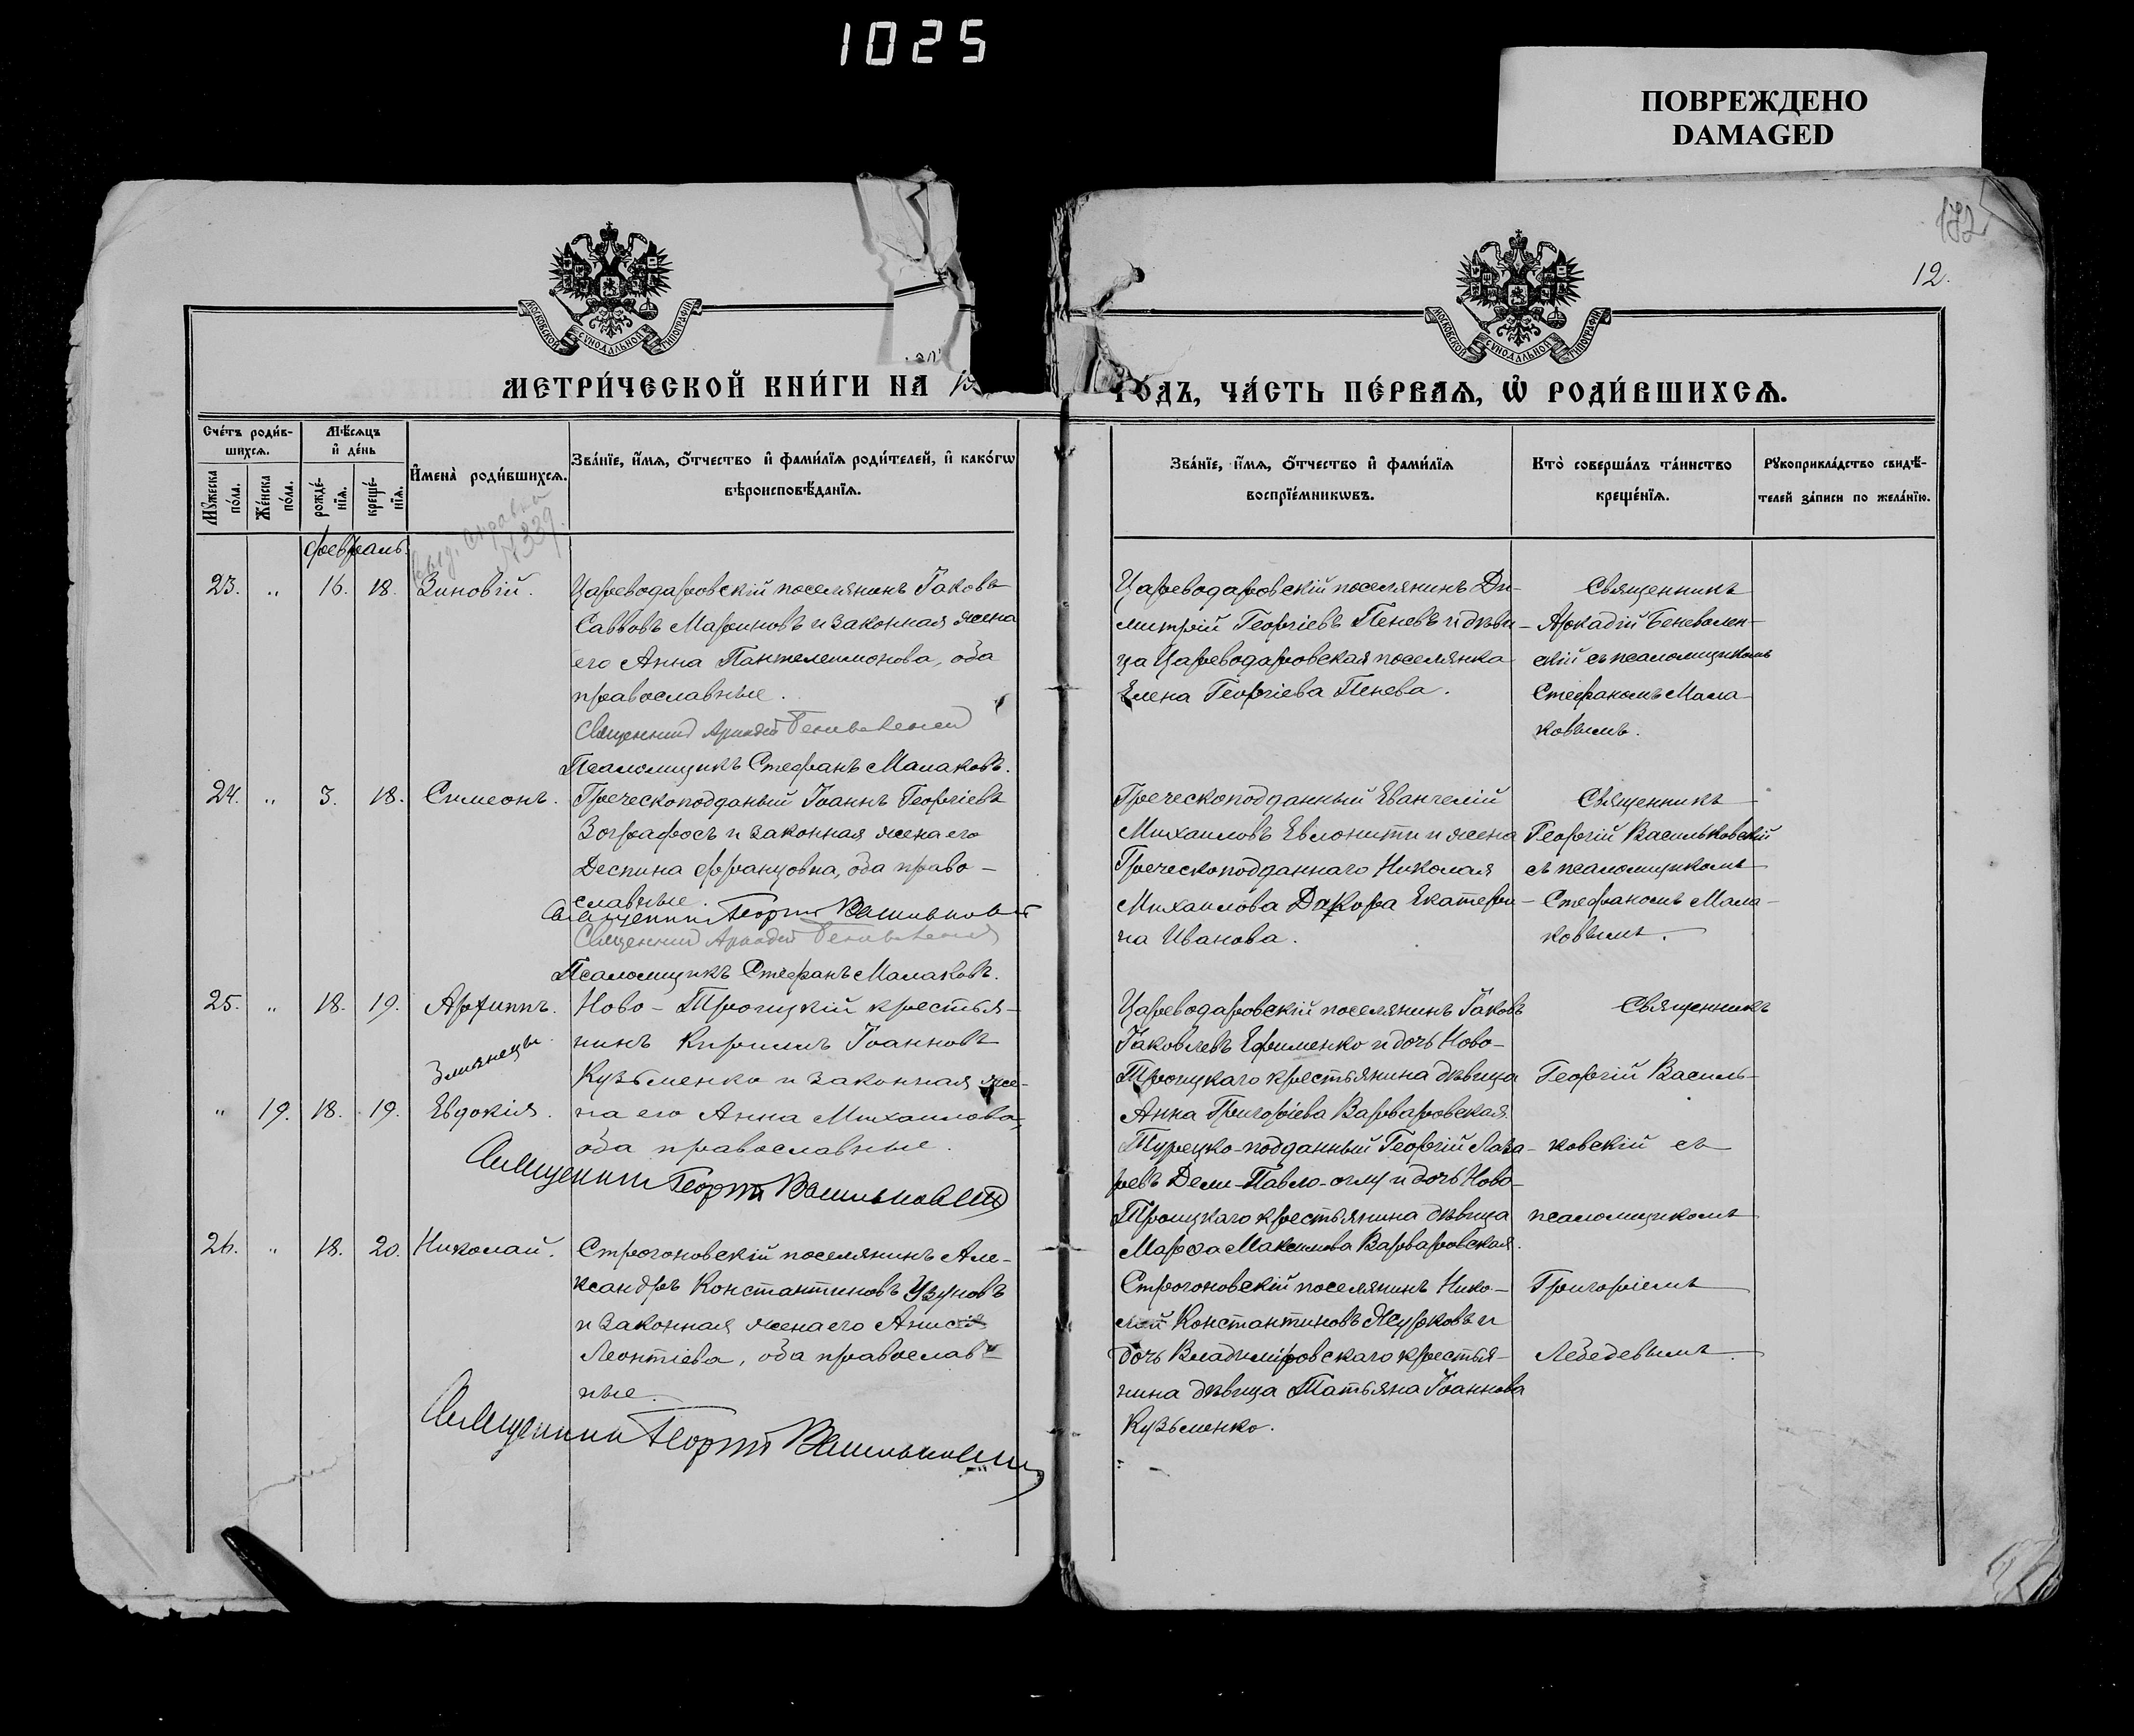 1025
ПОВРЕЖДЕНО
DAMAGED
172
12.
МОСКОВСКОЙ СѴНОДАЛЬНОЙ ТИПОГРАФІИ
МОСКОВСКОЙ СѴНОДАЛЬНОЙ ТИПОГРАФІИ
МЕТРИ́ЧЕСКОЙ КНИ́ГИ НА
ГО́ДЪ, ЧА́СТЬ ПЕ́РВАѦ, Ѡ҆ РОДИ́ВШИХСѦ.
Сче́тъ роди́в-
шихсѧ.
Мꙋ́жеска по́ла.
Же́нска по́ла.
Мѣ́сѧцъ
и҆ де́нь
рожде́-нїѧ.
креще́-нїѧ.
И҆мена̀ роди́вшихсѧ.
Зва́нїе, и҆́мѧ, ѻ҆́тчество и҆ фами́лїѧ роди́телей, и҆ како́гѡ
вѣроисповѣ́данїѧ.
Зва́нїе, и҆́мѧ, ѻ҆́тчество и҆ фами́лїѧ
воспрїе́мникѡвъ.
Кто̀ соверша́лъ та́инство
креще́нїѧ.
Рꙋкоприкла́дство свидѣ́-
телей за́писи по жела́нїю.
Февраль.
выд. справка
№339.
23. " 16. 18. Зиновій.
Цареводаровскій поселянинъ Іаковъ
Саввовъ Мариновъ и законная жена
его Анна Пантелеимонова, оба
православные.
Священникъ Аркадій Беневоленскій
Псаломщикъ Стефанъ Малаковъ.
Цареводаровскій поселянинъ Ди-
митрій Георгіевъ Пеневъ и дѣви-
ца Цареводаровская поселянка
Елена Георгіева Пенева.
Священникъ
Аркадій Беневолен-
скій съ псаломщикомъ
Стефаномъ Мала-
ковымъ.
24. " 3. 18. Симеонъ.
Греческоподданый Іоаннъ Георгіевъ
Зографосъ и законная жена его
Деспина Францовна, оба право-
славные.
Священникъ Георгій Васильковскій
Священникъ Аркадій Беневоленскій
Псаломщикъ Стефанъ Малаковъ.
Греческоподданный Евангелій
Михаиловъ Евлонити и жена
Греческоподданнаго Николая
Михаилова Дакора Екатери-
на Иванова.
Священникъ
Георгій Васильковскій
съ псаломщикомъ
Стефаномъ Мала-
ковымъ.
25. " 18. 19. Архиппъ.
Близнецы.
" 19. 18. 19. Евдокія.
Ново-Троицкій крестья-
нинъ Кириллъ Іоанновъ
Кузьменко и законная же-
на его Анна Михаилова,
оба православные.
Священникъ Георгій Васильковскій
Цареводаровскій поселянинъ Іаковъ
Іаковлевъ Ефименко и дочь Ново-
Троицкаго крестьянина дѣвица
Анна Григоріева Варваровская.
Турецко-подданный Георгій Лаза-
ревъ Дели-Павло-оглу и дочь Ново-
Троицкаго крестьянина дѣвица
Марѳа Максимова Варваровская.
Священникъ
Георгій Василь-
ковскій съ
псаломщикомъ
Григоріемъ
Лебедевымъ.
26. " 18. 20. Николай.
Строгоновскій поселянинъ Але-
ксандръ Константиновъ Узуновъ
и законная жена его Анисія
Леонтіева, оба православ-
ные.
Священникъ Георгій Васильковскій
Строгоновскій поселянинъ Нико-
лай Константиновъ Журковъ и
дочь Владиміровскаго крестья-
нина дѣвица Татьяна Іоаннова
Кузьменко.